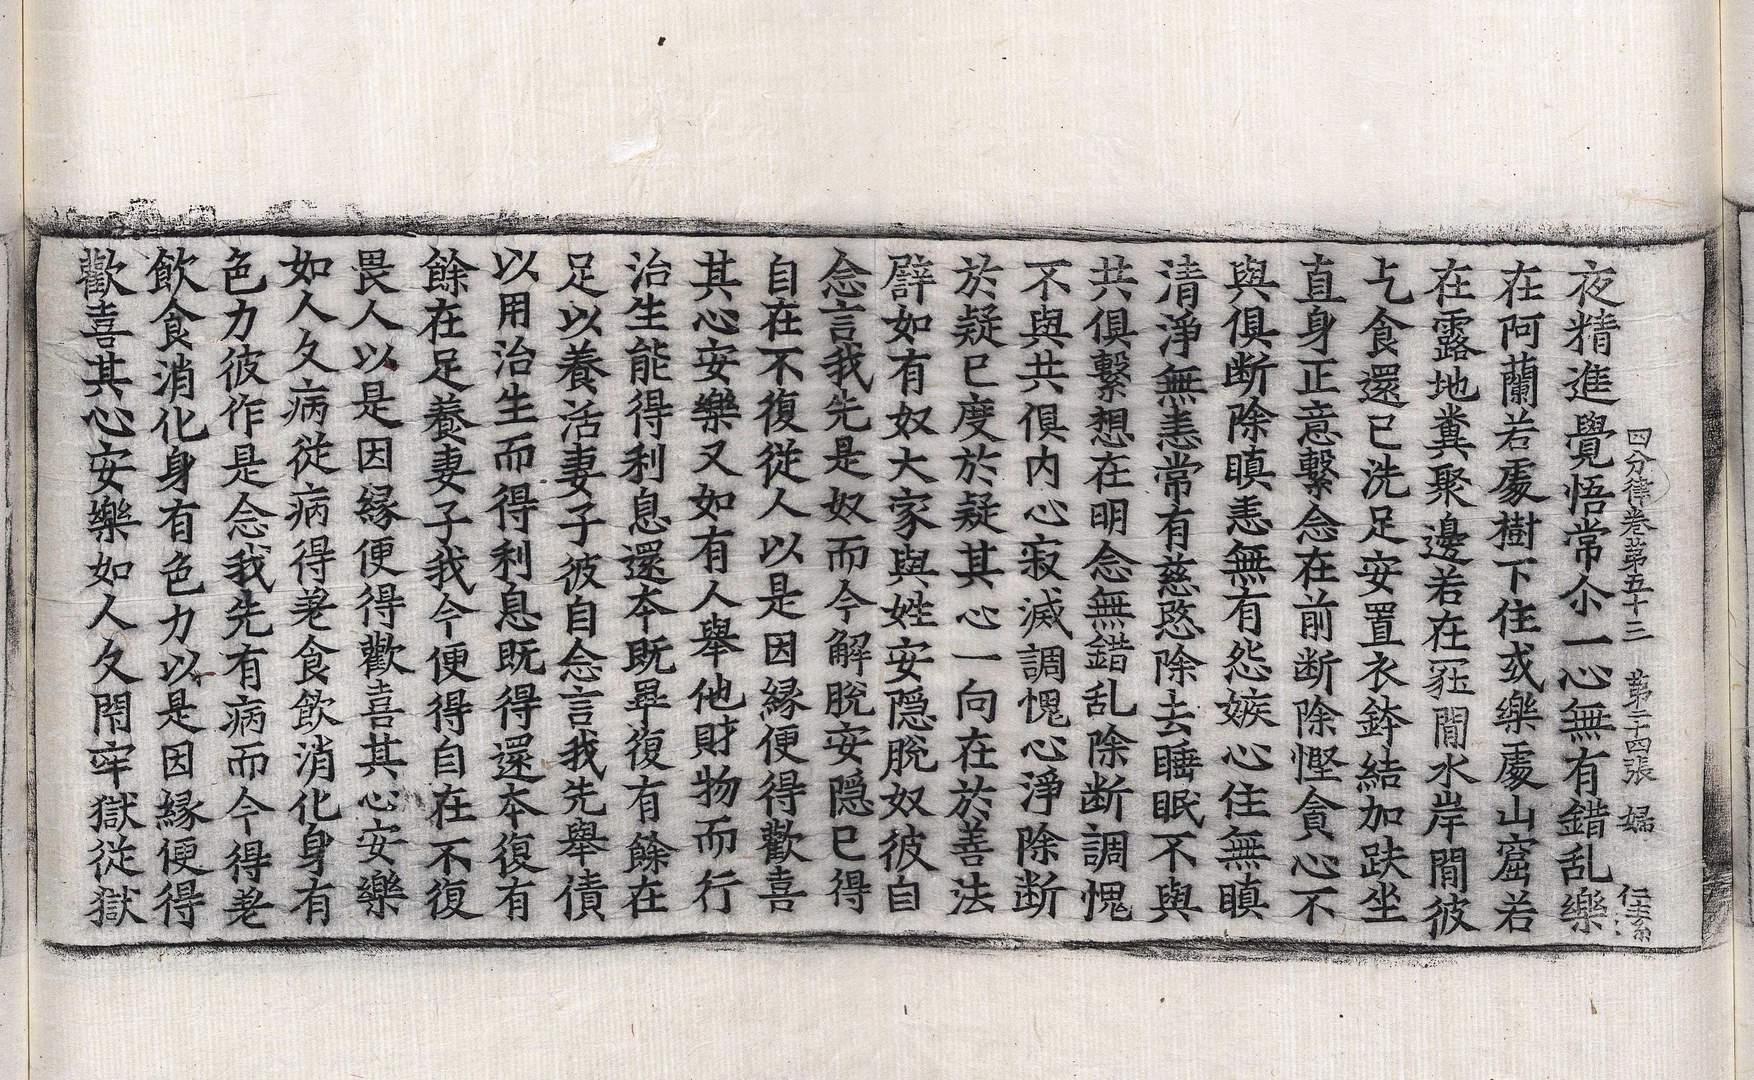 四分律卷第五十三 第二十四張 婦
夜精進覺悟常尒一心無有錯乱樂
在阿蘭若處樹下住或樂處山窟若
在露地糞聚邊若在冢間水岸間彼
乞食還已洗足安置衣鉢結加趺坐
直身正意繫念在前断除慳貪心不
與俱断除瞋恚無有怨嫉心住無瞋
清淨無恚常有慈愍除去睡眠不與
共俱繫想在明念無錯乱除断調愧
不與共俱内心寂滅調愧心淨除断
於疑已度於疑其心一向在於善法
譬如有奴大家與姓安隠脫奴彼自
念言我先是奴而今解脫安隠已得
自在不復從人以是因縁便得歡喜
其心安樂又如有人舉他財物而行
治生能得利息還本既畢復有餘在
足以養活妻子彼自念言我先舉債
以用治生而得利息既得還本復有
餘在足養妻子我今便得自在不復
畏人以是因縁便得歡喜其心安樂
如人久病從病得差食飲消化身有
色力彼作是念我先有病而今得差
飲食消化身有色力以是因縁便得
歡喜其心安樂如人久閇牢獄從獄